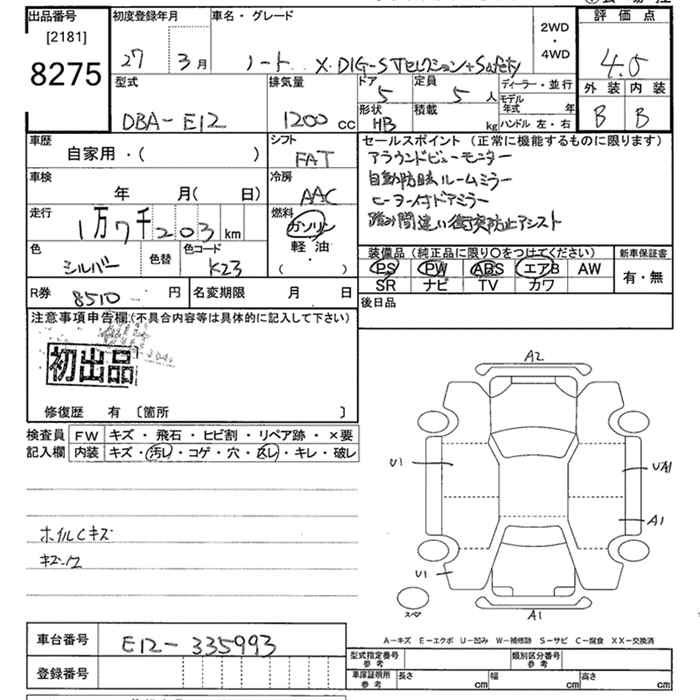 出品番号
[2181]
8275
初度登録年月
27 3月
車名・グレード
ノート X・DIG-S Vセレクション+Safety
2WD
・
4WD
評価点
4.5
外装 内装
B B
型式
DBA-E12
排気量
1200cc
ドア
5
定員
5人
ディーラー・並行
形状
HB
積載
kg
モデル年式 年
ハンドル 左・右
車歴
自家用・( )
シフト
FAT
車検
年 月( 日)
冷房
AAC
走行
1万7千203km
燃料
ガソリン
軽油
( ・ )
色
シルバー
色替
色コード
K23
R券 8510 円
名変期限 月 日
セールスポイント (正常に機能するものに限ります)
アラウンドビューモニター
自動防眩ルームミラー
ヒーター付ドアミラー
踏み間違い衝突防止アシスト
装備品(純正品に限り○をつけてください)
PS PW ABS エアB AW
SR ナビ TV カワ
新車保証書
有・無
後日品
注意事項申告欄(不具合内容等は具体的に記入して下さい)
初出品
修復歴 有 〔箇所 〕
検査員記入欄
FW キズ・飛石・ヒビ割・リペア跡・×要
内装 キズ・汚レ・コゲ・穴・凹レ・キレ・破レ
ホイルCキズ
A2
U1
UA1
A1
U1
A1
スペア
A-キズ E-エクボ U-凹み W-補修跡 S-サビ C-腐食 XX-交換済
車台番号 E12-335993
登録番号
型式指定番号
参考
類別区分番号
参考
車庫証明用
参考
長さ cm
幅 cm
高さ cm